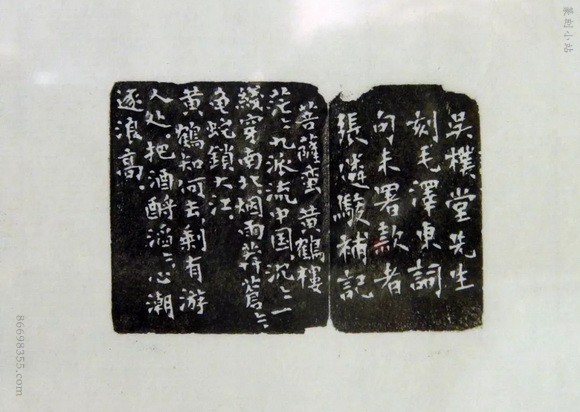 吳樸堂先生
刻毛澤東詞
句未署款者
張遴駿補記
菩薩蠻 黄鶴樓
茫〻九派流中国,沉〻一
綫穿南北。烟雨莽蒼〻
龟蛇鎖大江。
黄鶴知何去,剩有游
人处。把酒酹滔〻,心潮
逐浪高。
篆刻小站
86698355.com